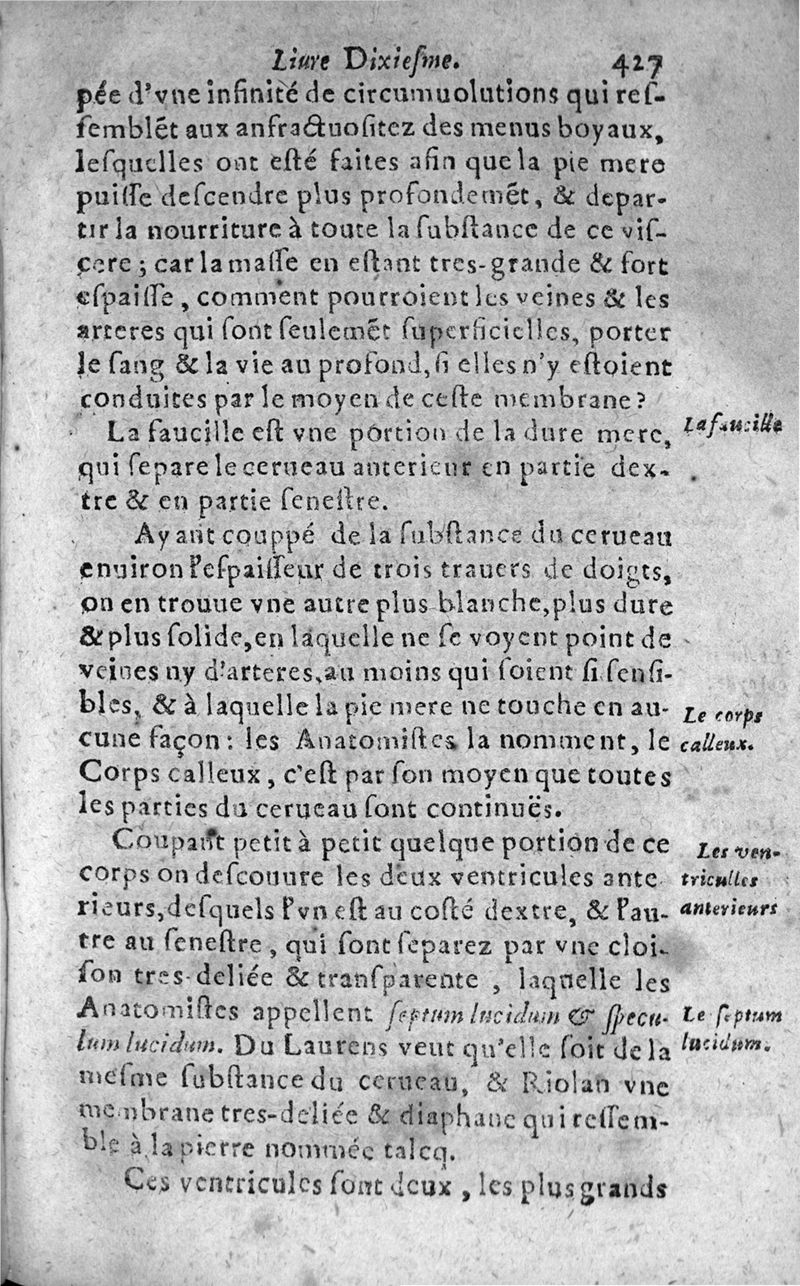 Liure Dixiesme. 427
pée d'vne infinité de circumuolutions qui res-
semblẽt aux anfractuositez des menus boyaux,
lesquelles ont esté faites afin que la pie mere
puisse descendre plus profondemẽt, & depar-
tir la nourriture à toute la substance de ce vis-
cere ; car la masse en estant tres-grande & fort
espaisse, comment pourroient les veines & les
arteres qui sont seulemẽt superficielles, porter
le sang & la vie au profond, si elles n'y estoient
conduites par le moyen de ceste membrane?
La faucille est vne portion de la dure mere,
La faucille
qui separe le cerueau anterieur en partie dex-
tre & en partie senestre.
Ayant couppé de la substance du cerueau
enuiron l'espaisseur de trois trauers de doigts,
on en trouue vne autre plus blanche, plus dure
& plus solide, en laquelle ne se voyent point de
veines ny d'arteres, au moins qui soient si sensi-
bles, & à laquelle la pie mere ne touche en au-
Le corps
cune façon : les Anatomistes la nomment, le
calleux.
Corps calleux, c'est par son moyen que toutes
les parties du cerueau sont continuës.
Coupant petit à petit quelque portion de ce
Les ven-
corps on descouure les deux ventricules ante
triculles
rieurs, desquels l'vn est au costé dextre, & l'au-
anterieurs
tre au senestre, qui sont separez par vne cloi-
son tres-deliée & transparente, laquelle les
Anatomistes appellent septum lucidum & specu-
Le septum
lum lucidum. Du Laurens veut qu'elle soit de la
lucidum.
mesme substance du cerueau, & Riolan vne
membrane tres-deliée & diaphane qui ressem-
ble à la pierre nommée talcq.
Ces ventricules sont deux, les plus grands